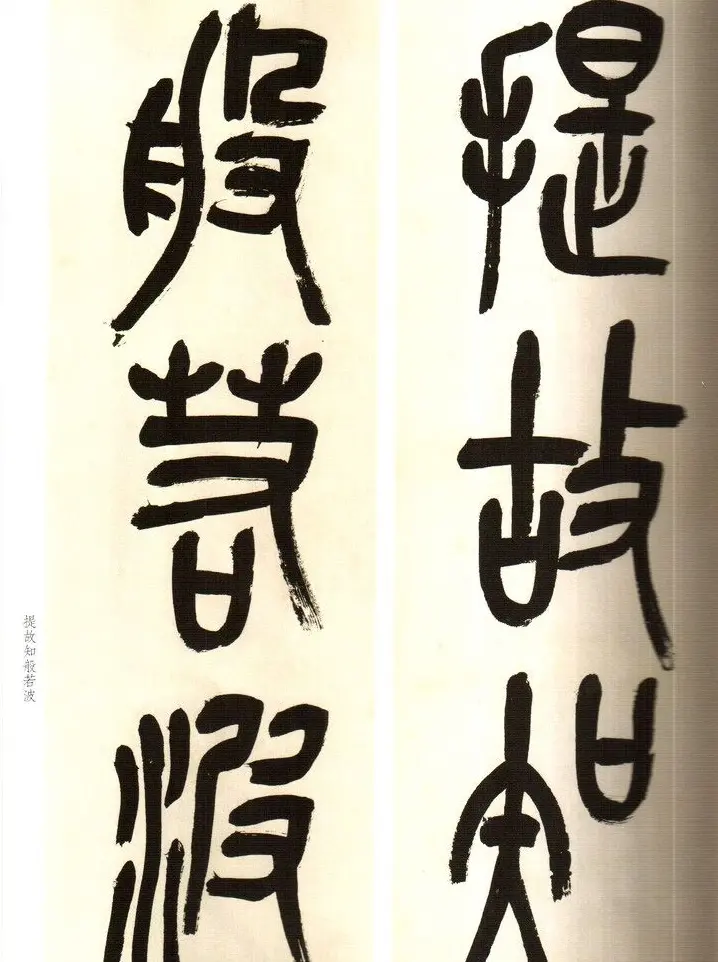 提故知
般若波
提故知般若波